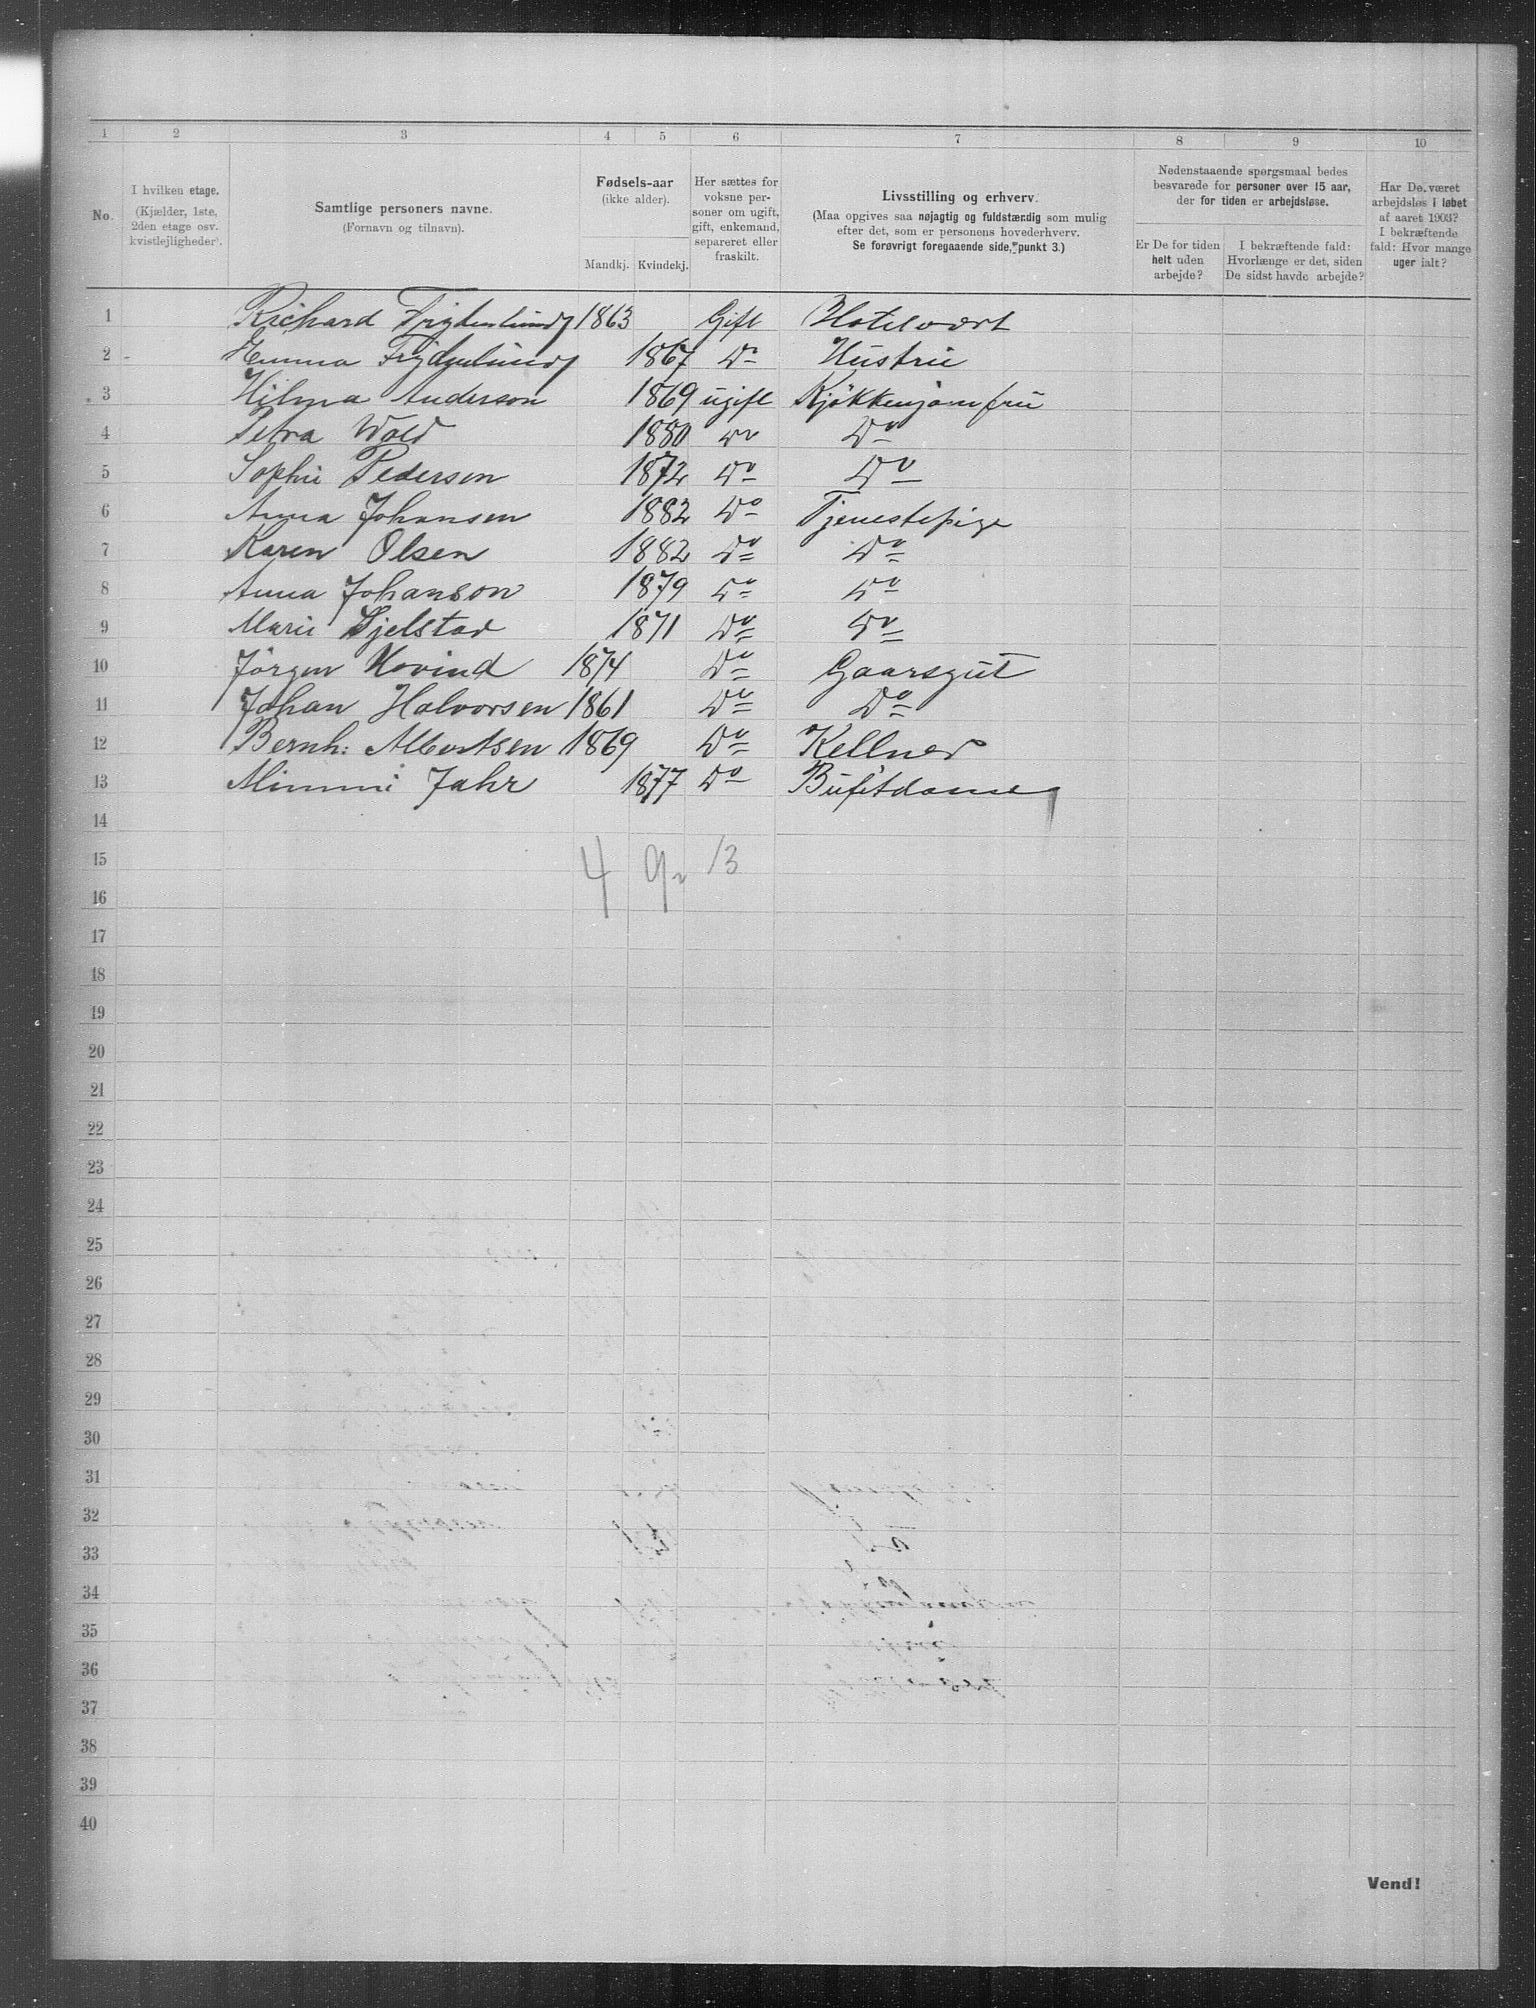 1 2 3 4 5 6 7 8 9 10
No.
I hvilken etage. (Kjælder, 1ste, 2den etage osv. kvistlejligheder).
Samtlige personers navne. (Fornavn og tilnavn).
Fødsels-aar (ikke alder).
Mandkj. Kvindekj.
Her sættes for voksne personer om ugift, gift, enkemand, separeret eller fraskilt.
Livsstilling og erhverv. (Maa opgives saa nøjagtig og fuldstændig som mulig efter det, som er personens hovederhverv. Se forøvrigt foregaaende side, punkt 3.)
Nedenstaaende spørgsmaal bedes besvarede for personer over 15 aar, der for tiden er arbejdsløse.
Er De for tiden helt uden arbejde?
I bekræftende fald: Hvorlænge er det, siden De sidst havde arbejde?
Har De været arbejdsløs i løbet af aaret 1903? I bekræftende fald: Hvor mange uger ialt?
1 Richard Frydenlund 1863 Gift Hotelvært
2 Hemma Frydenlund 1867 Do Hustru
3 Hilma Anderson 1869 ugift Kjøkkenjomfru
4 Petra Wold 1880 Do Do
5 Sophie Pederson 1872 Do Do
6 Anna Johansen 1882 Do Tjenestepige
7 Karen Olsen 1882 Do Do
8 Anna Johanson 1879 Do Do
9 Marie Gjelstad 1871 Do Do
10 Jörgen Hovind 1874 Do Gaarsgut
11 Johan Halvorsen 1861 Do Do
12 Bernh: Albertsen 1869 Do Kellner
13 Mimmi Jahr 1877 Do Bufetdame
14
15 4 9 13
16
17
18
19
20
21
22
23
24
25
26
27
28
29
30
31
32
33
34
35
36
37
38
39
40
Vend!